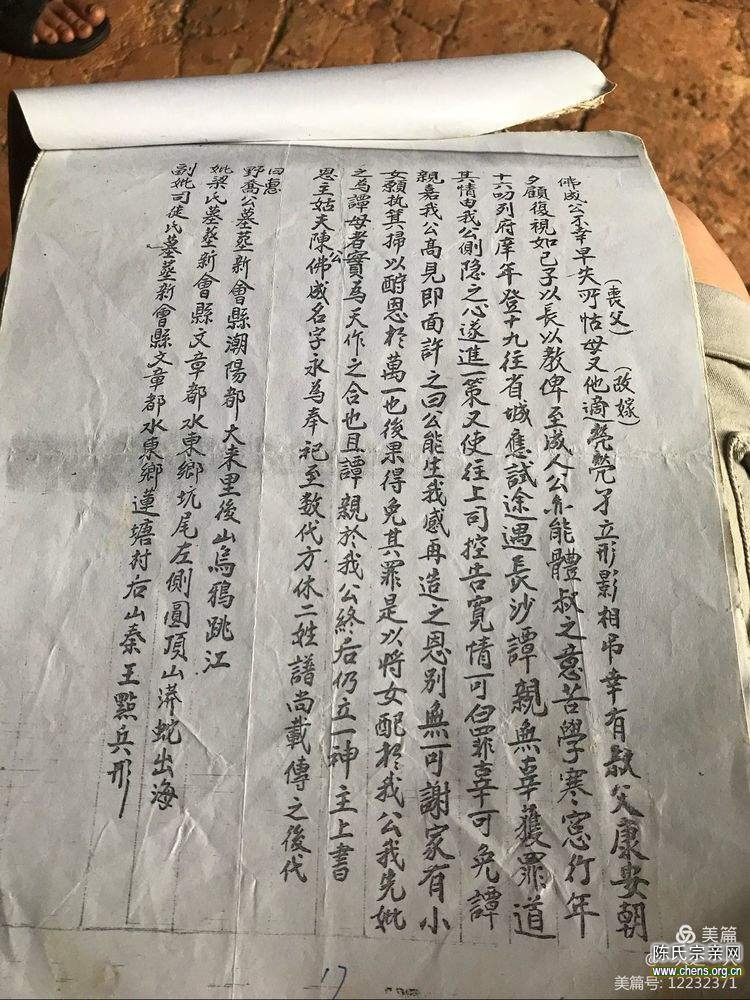 (喪父)
(改嫁)
佛成公不幸早失所怙母又他適煢煢孑立形影相吊幸有叔父康安朝
夕顧復視如己子以長以教俾至成人公亦能體叔之意苦學寒窓行年
十六叨列府庠年登十九往省城應試途遇長沙譚親無辜獲罪道
其情由我公側隐之心遂進一策又使往上司控告寃情可白罪辜可免譚
親嘉我公高見即面許之曰公能生我感再造之恩别無可謝家有小
女願执箕掃以酧恩於萬一也後果得免其罪是以将女配於我公我先妣
之為譚母者實為天作之合也且譚親於我公終后仍立一神主上書
恩主姑夫陳公佛成名字永為奉祀至数代方休二姓譜尚載傳之後代
曰惠
野喬公墓塟新會縣潮陽都大来里後山烏鴉跳江
妣梁氏墓塟新會縣文章都水東鄉坑尾左側圓頂山蟒蛇出海
副妣司徒氏墓塟新會縣文章都水東鄉蓮塘村后山秦王點兵形
17
美篇
陈氏宗亲网
www.chens.org.cn
美篇号: 12232371